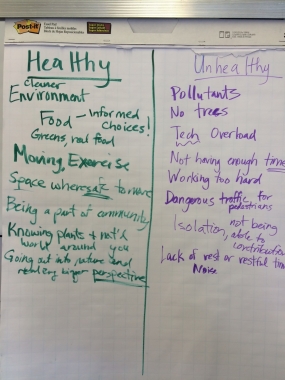 Post-it
Healthy
cleaner
Environment
Food - Informed
choices!
Greens, real food
Moving, Exercise
Space where safe to move
Being a part of community
Knowing plants + nat'l
world around you
Going out into nature and
realizing bigger perspective
Unhealthy
Pollutants
No trees
Tech Overload
Not having enough time
Working too hard
Dangerous traffic for
pedestrians
Isolation, not being
able to
contribute
Lack of rest or restful time
Noise